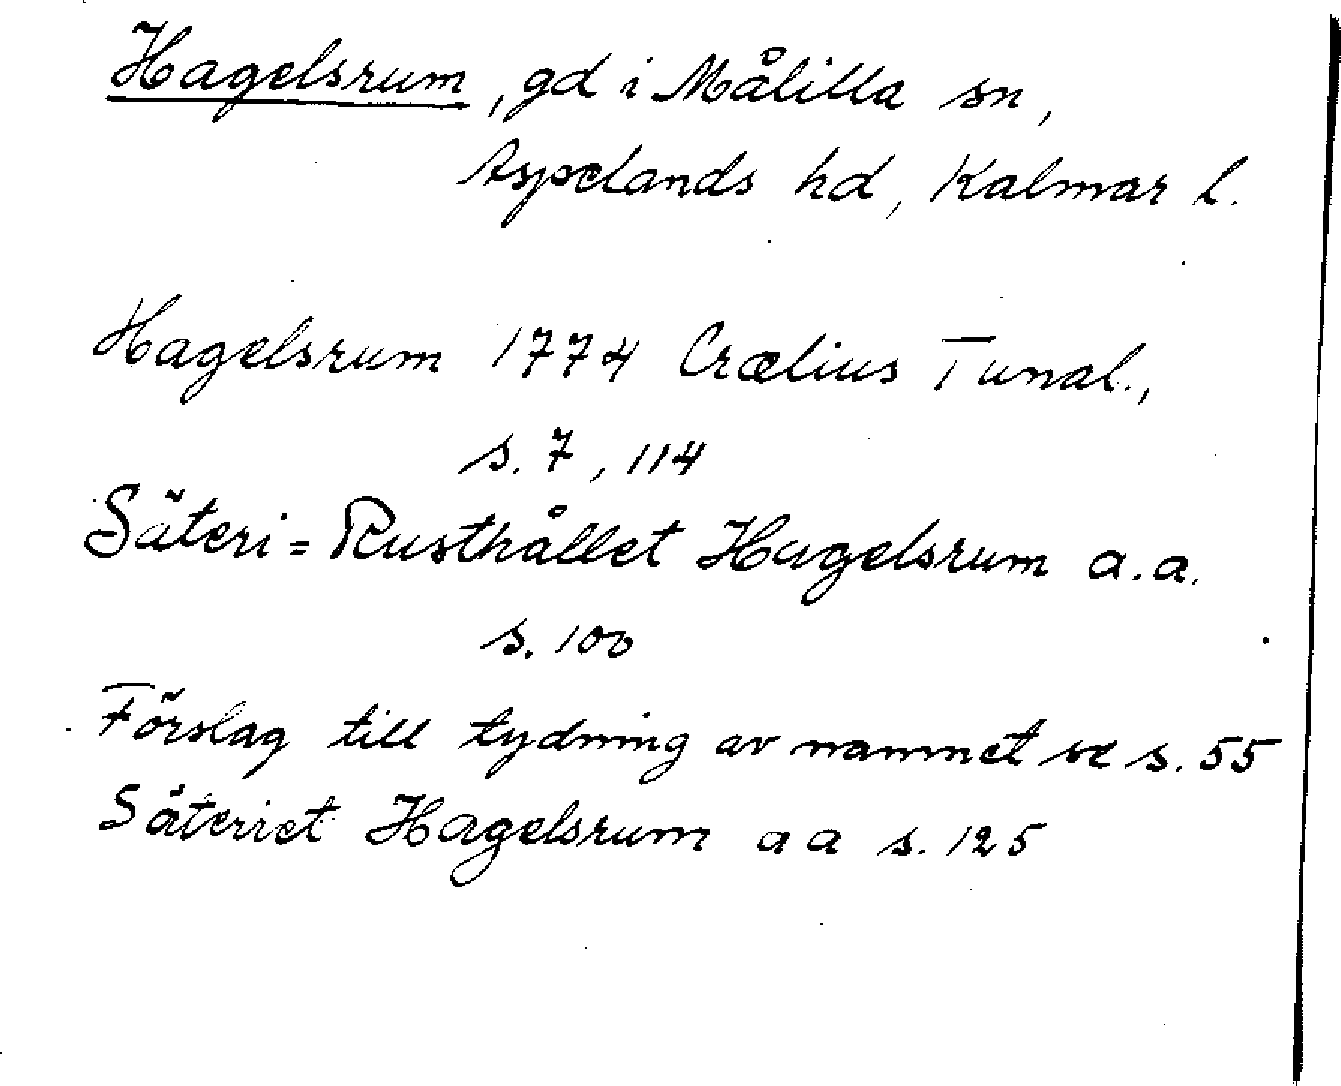 Hagelsrum, gd i Målilla sn,
Aspelands hd, Kalmar l.
Hagelsrum 1774 Crælius Tunal.,
s. 7, 114
Säteri = Rusthållet Hagelsrum a.a.
s. 100
Förslag till tydning av namnet se s. 55
Säteriet Hagelsrum a a s. 125